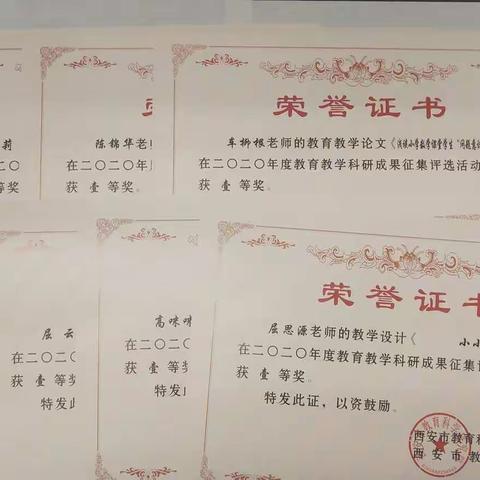 莉
陈锦华老
在二〇二〇年
获 壹 等奖。
荣誉证书
车柳根老师的教育教学论文《浅谈小学数学课堂学生“问题意识
在二〇二〇年度教育教学科研成果征集评选活动
获 壹 等奖。
屈 云
在二〇二〇
获 壹 等奖
特发此
高咪咪
在二〇二〇
获 壹 等奖
特发此
荣誉证书
屈思源老师的教学设计《 小小
在二〇二〇年度教育教学科研成果征集评
获 壹 等奖。
特发此证，以资鼓励。
西安市教育科
西 安 市 教